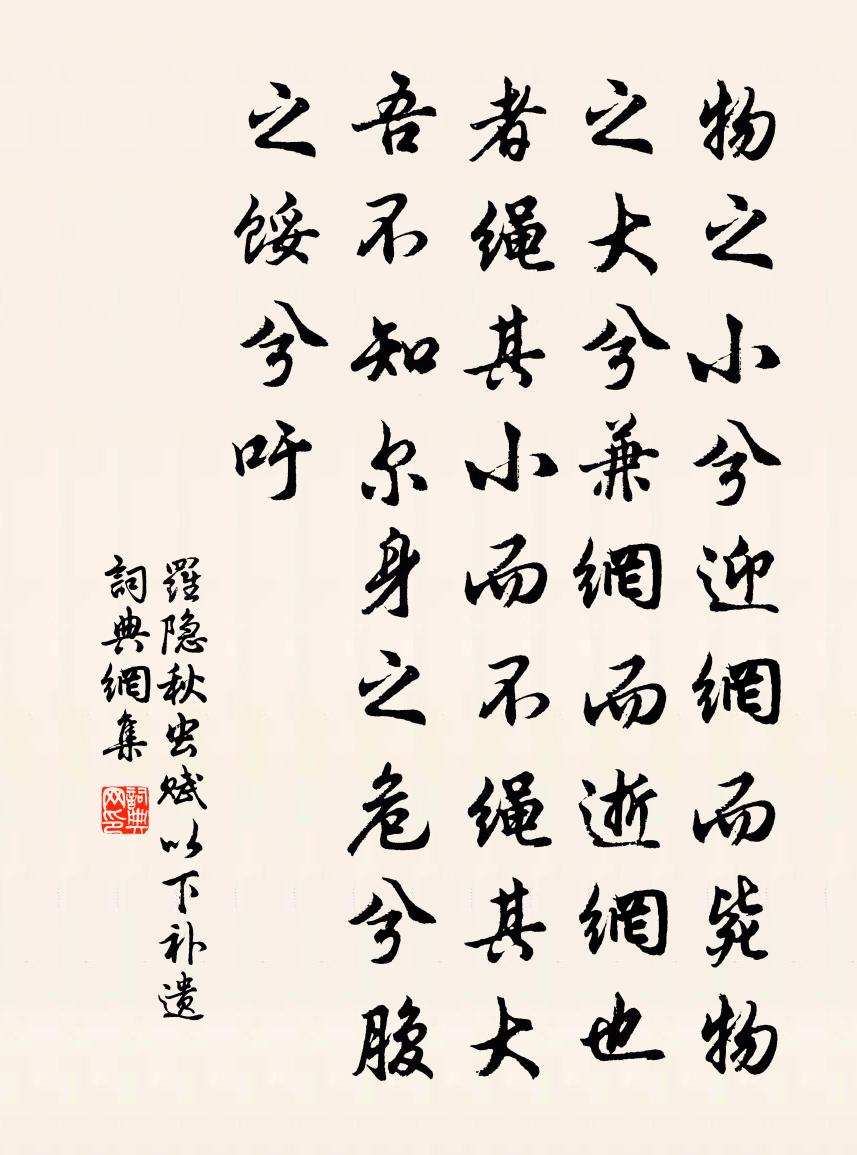 物之小兮迎網而毙物
之大兮兼網而逝網也
者绳其小而不绳其大
吾不知尔身之危兮腹
之馁兮吁
羅隐秋虫赋以下补遗
詞典網集
詞典网印